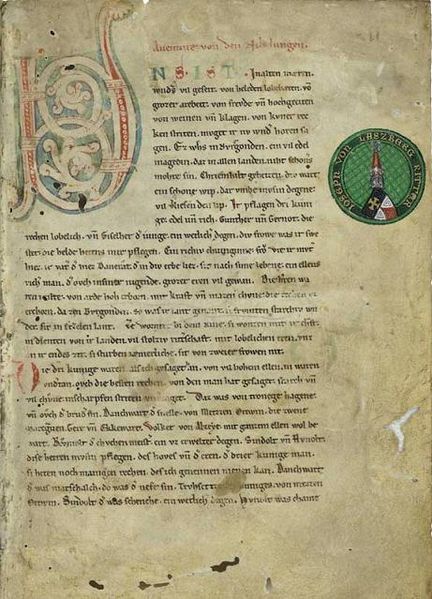 Auenture von den Nibelungen.
VNS IST In alten mæren.
wnders vil geseit. von heleden lobebæren. vō
grozer arebeit. von freude vn̄ hochgeciten
von weinen vn̄ klagen. von kuner rec
ken striten. muget ir nv wnder horen sa
gen. Ez whs in Bvrgonden. ein vil edel
magedin. daz in allen landen. niht schoners
mohte sin. Chriemhilt geheizen. div wart
ein schone wip. dar vmbe mvsin degene
vil verliesen den lip. Ir pflagen dri kuni
ge. edel vn̄ rich. Gunther vn̄ Gernot. die
rechen lobelich. vn̄ Giselher d iunge. ein wetlich degen. div frowe was ir swe
ster. die helde hetens inir pflegen. Ein richiv chuniginne. frō vte ir mvt
hiez. ir vater d hiez Dancrat. d in div erbe liez. sit nach sime lebene. ein ellens
rich man. d ovch in siner iugende. grozer eren vil gewan. Die herren
waren milte. von arde hoh erborn. mit kraft vnmazen chune. die rechen vz
erchorn. da zen Bvrgonden. so was ir lant genant. si frumten starchiv wn
der. sit in Ezelen lant. Ze Wormze bi dem Rine. si wonten mit ir chraft.
in dienten von ir landen. vil stolziv ritterschaft. mit lobelichen eren. vnz
an ir endes zit. si sturben iæmerliche. sit von zweier frowen nit.
Die dri kunige waren. als ich gesaget han. von vil hohen ellen. in waren
vndertan. ovch die besten rechen. von den man hat gesaget. starch vn̄
vil chune. in scharpfen striten vnverzaget. Daz was von tronege hagene.
vn̄ ovch d bruder sin. Danchwart d snelle. von Metzen Ortwin. die zwene
marcgraven. Gere vn̄ Ekkewart. Volker von Alzeye. mit ganzem ellen wol be
wart. Rvmolt d chuchenmeister. ein vz erwelter degen. Sindolt vn̄ Hvnolt.
dise herren mvsin pflegen. des hoves vn̄ d eren. d drier kunige man.
si heten noch manigen rechen. des ich genennen nienen kan. Danchwart
d was marschalch. do was d neve sin. Truhsetze des kuniges. von mezen
Ortwin. Sindolt d was schenche. ein wetlich degen. Hvnolt was chame
IOSEPH VON LASZBERG RITTER